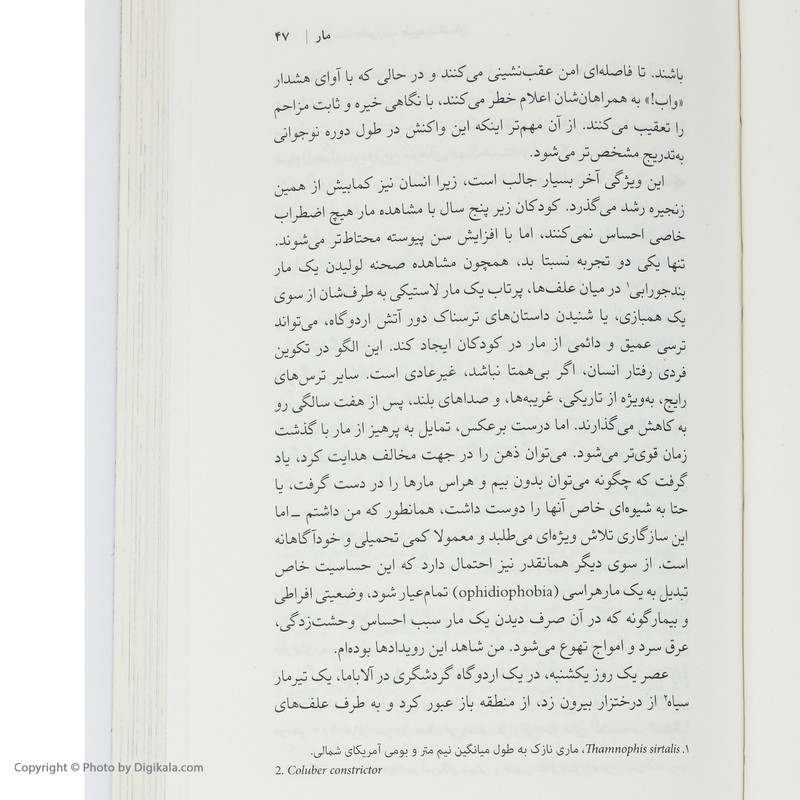 مار | ۴۷
باشند. تا فاصله‌ای امن عقب‌نشینی می‌کنند و در حالی که با آوای هشدار
«واپ!» به همراهان‌شان اعلام خطر می‌کنند، با نگاهی خیره و ثابت مزاحم
را تعقیب می‌کنند. از آن مهم‌تر اینکه این واکنش در طول دوره نوجوانی
به‌تدریج مشخص‌تر می‌شود.
این ویژگی آخر بسیار جالب است، زیرا انسان نیز کمابیش از همین
زنجیره رشد می‌گذرد. کودکان زیر پنج سال با مشاهده مار هیچ اضطراب
خاصی احساس نمی‌کنند، اما با افزایش سن پیوسته محتاط‌تر می‌شوند.
تنها یکی دو تجربه نسبتا بد، همچون مشاهده صحنه لولیدن یک مار
بندجورابی۱ در میان علف‌ها، پرتاب یک مار لاستیکی به طرف‌شان از سوی
یک همبازی، یا شنیدن داستان‌های ترسناک دور آتش اردوگاه، می‌تواند
ترسی عمیق و دائمی از مار در کودکان ایجاد کند. این الگو در تکوین
فردی رفتار انسان، اگر بی‌همتا نباشد، غیرعادی است. سایر ترس‌های
رایج، به‌ویژه از تاریکی، غریبه‌ها، و صداهای بلند، پس از هفت سالگی رو
به کاهش می‌گذارند. اما درست برعکس، تمایل به پرهیز از مار با گذشت
زمان قوی‌تر می‌شود. می‌توان ذهن را در جهت مخالف هدایت کرد، یاد
گرفت که چگونه می‌توان بدون بیم و هراس مارها را در دست گرفت، یا
حتا به شیوه‌ای خاص آنها را دوست داشت، همانطور که من داشتم ــ اما
این سازگاری تلاش ویژه‌ای می‌طلبد و معمولا کمی تحمیلی و خودآگاهانه
است. از سوی دیگر همانقدر نیز احتمال دارد که این حساسیت خاص
تبدیل به یک مارهراسی (ophidiophobia) تمام‌عیار شود، وضعیتی افراطی
و بیمارگونه که در آن صرف دیدن یک مار سبب احساس وحشت‌زدگی،
عرق سرد و امواج تهوع می‌شود. من شاهد این رویدادها بوده‌ام.
عصر یک روز یکشنبه، در یک اردوگاه گردشگری در آلاباما، یک تیرمار
سیاه۲ از درختزار بیرون زد، از منطقه باز عبور کرد و به طرف علف‌های
۱. Thamnophis sirtalis، ماری نازک به طول میانگین نیم متر و بومی آمریکای شمالی.
2. Coluber constrictor
Copyright © Photo by Digikala.com